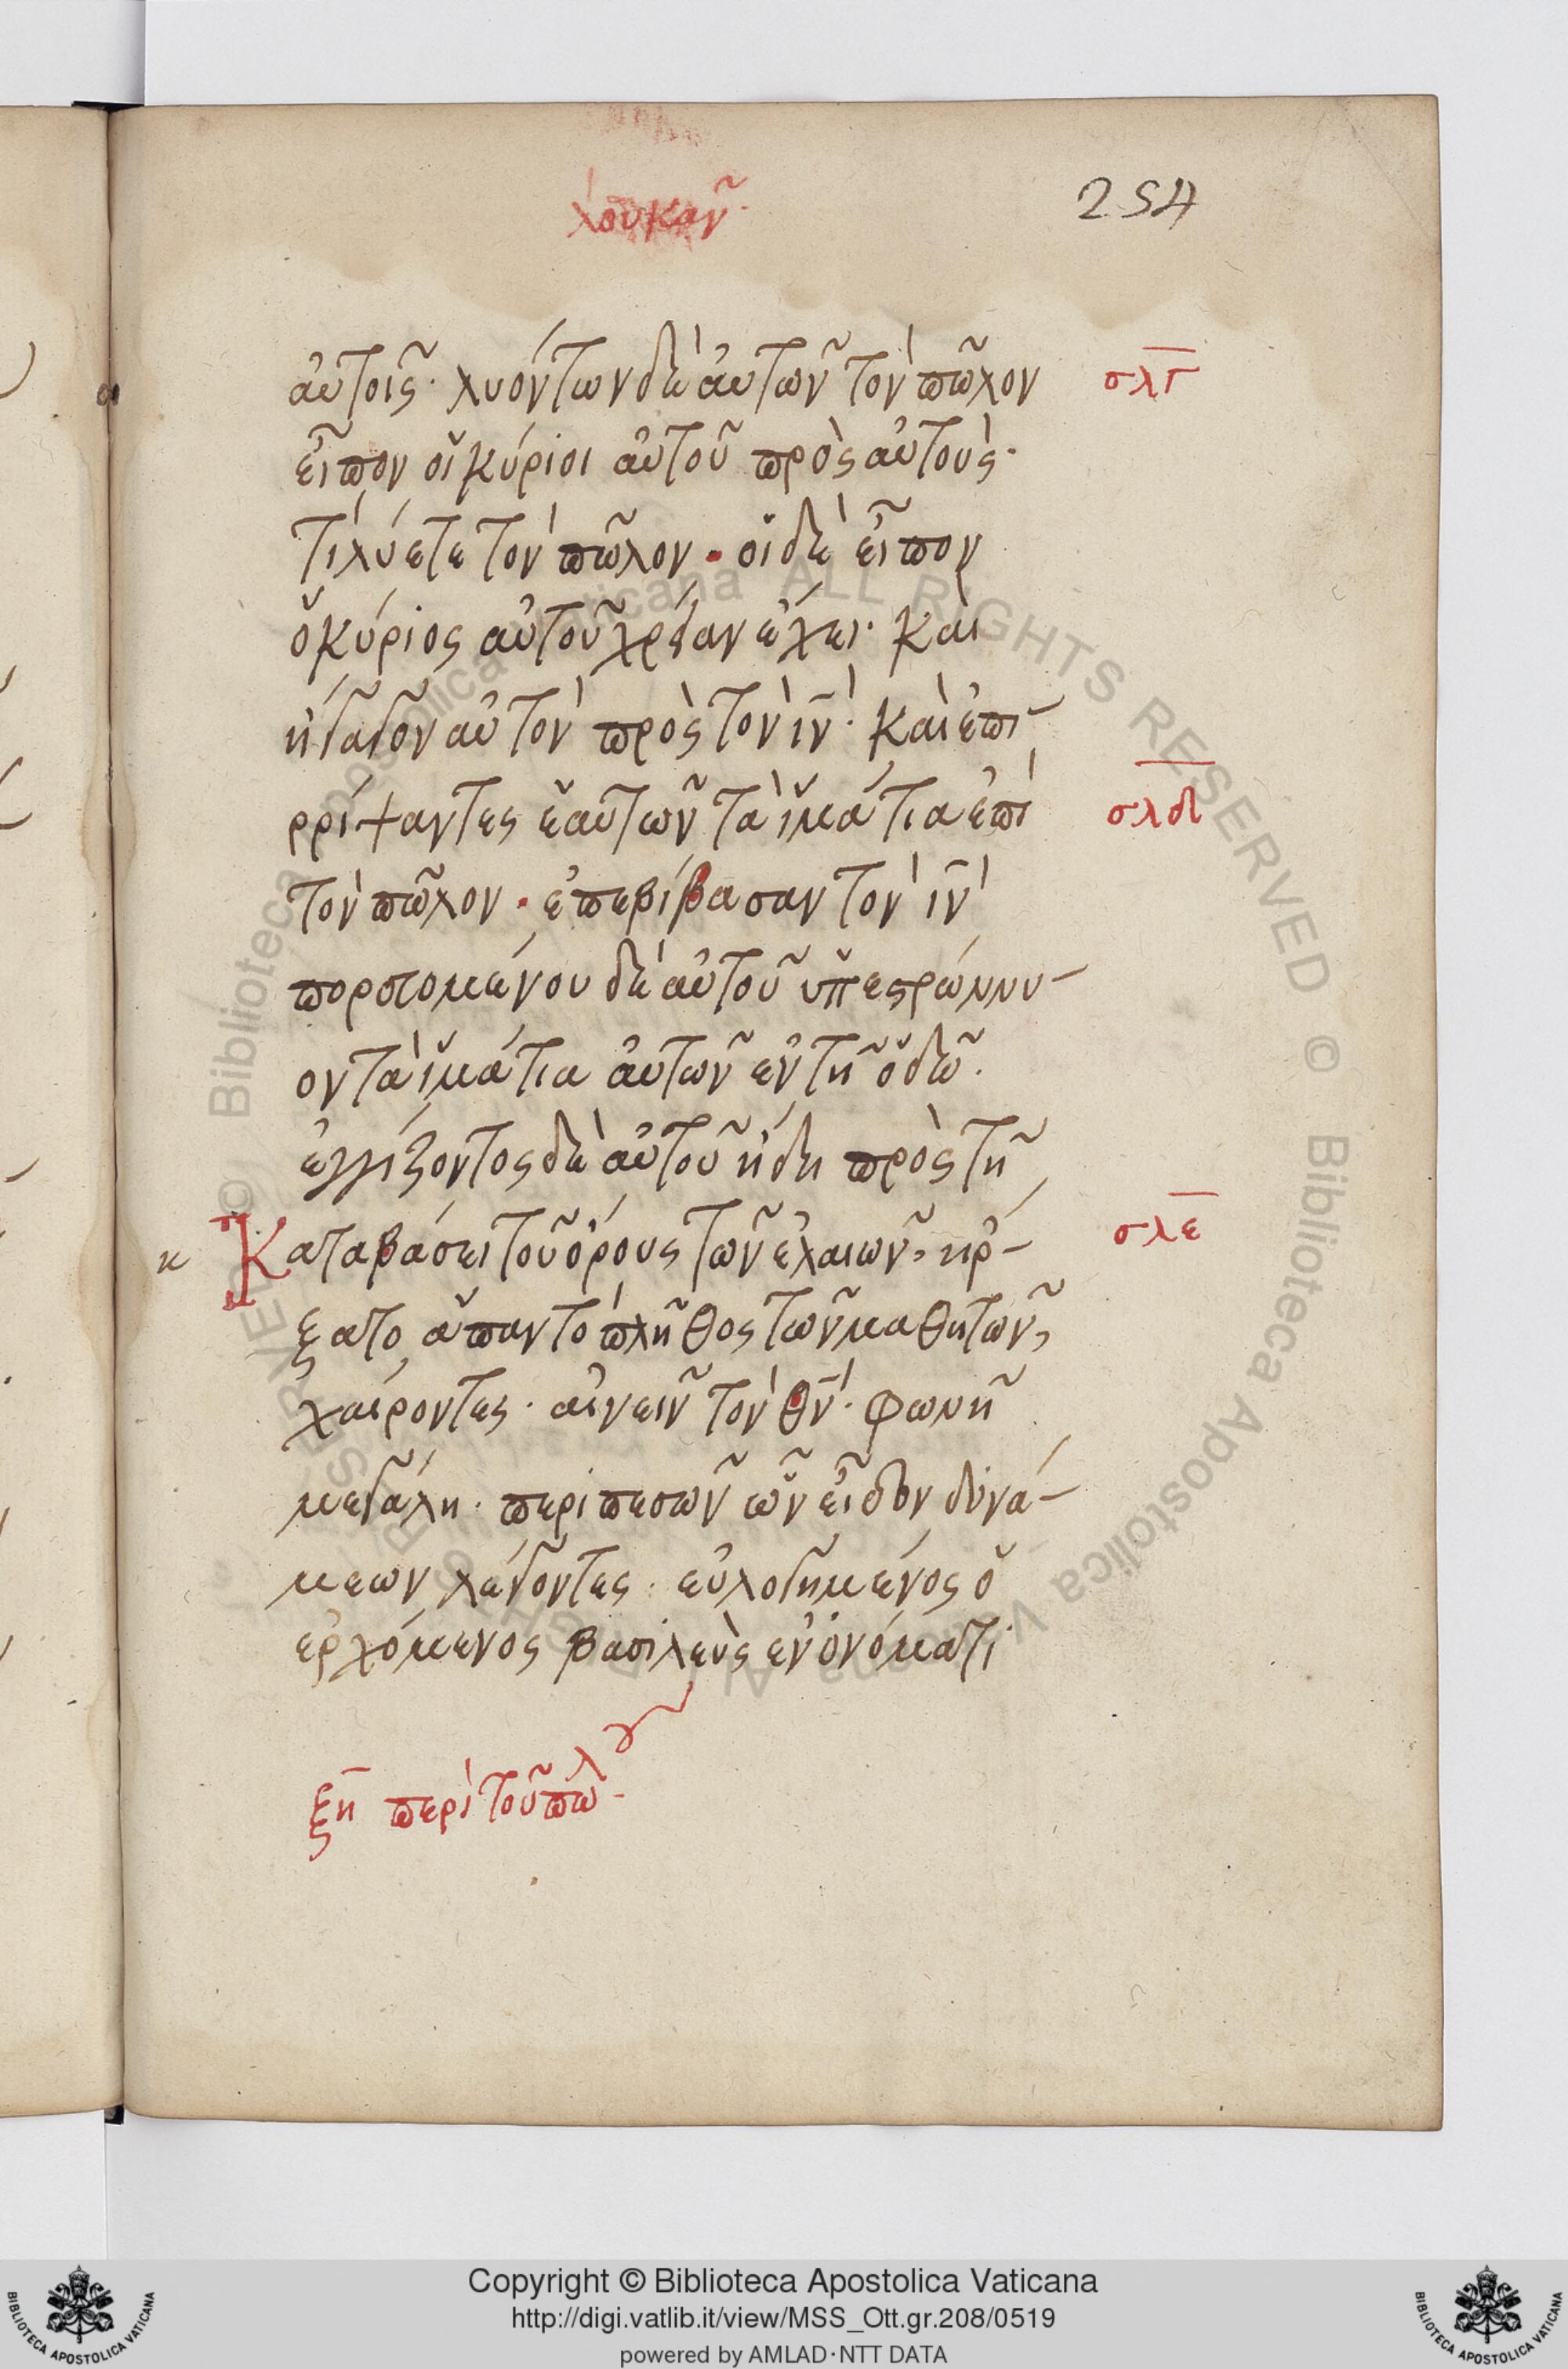 λουκᾶν
254
αὐτοῖς· λυόντων δὲ αὐτῶν τὸν πῶλον σλγ
εἶπον οἱ κύριοι αὐτοῦ πρὸς αὐτούς·
τί λύετε τὸν πῶλον· οἱ δὲ εἶπον
ὁ κύριος αὐτοῦ χρείαν ἔχει· καὶ
ἤγαγον αὐτὸν πρὸς τὸν ιν· καὶ ἐπι-
ρρίψαντες ἑαυτῶν τὰ ἱμάτια ἐπὶ σλδ
τὸν πῶλον· ἐπεβίβασαν τὸν ιν
πορευομένου δὲ αὐτοῦ ὑπεστρώννυ-
ον τὰ ἱμάτια αὐτῶν ἐν τῇ ὁδῷ·
ἐγγίζοντος δὲ αὐτοῦ ἤδη πρὸς τῇ
κ Καταβάσει τοῦ ὄρους τῶν ἐλαιῶν, ἤρ- σλε
ξατο ἅπαν τὸ πλῆθος τῶν μαθητῶν,
χαίροντες· αἰνεῖν τὸν θν· φωνῇ
μεγάλη· περὶ πεσῶν ὧν εἶδον δυνά-
μεων λέγοντες· εὐλογημένος ὁ
ἐρχόμενος βασιλεὺς ἐν ὀνόματι
ξη περὶ τοῦ πώλου
Biblioteca Apostolica Vaticana ALL RIGHTS RESERVED © Biblioteca Apostolica Vaticana ALL RIGHTS RESERVED ©
Copyright © Biblioteca Apostolica Vaticana
http://digi.vatlib.it/view/MSS_Ott.gr.208/0519
powered by AMLAD·NTT DATA
BIBLIOTECA APOSTOLICA VATICANA
BIBLIOTECA APOSTOLICA VATICANA